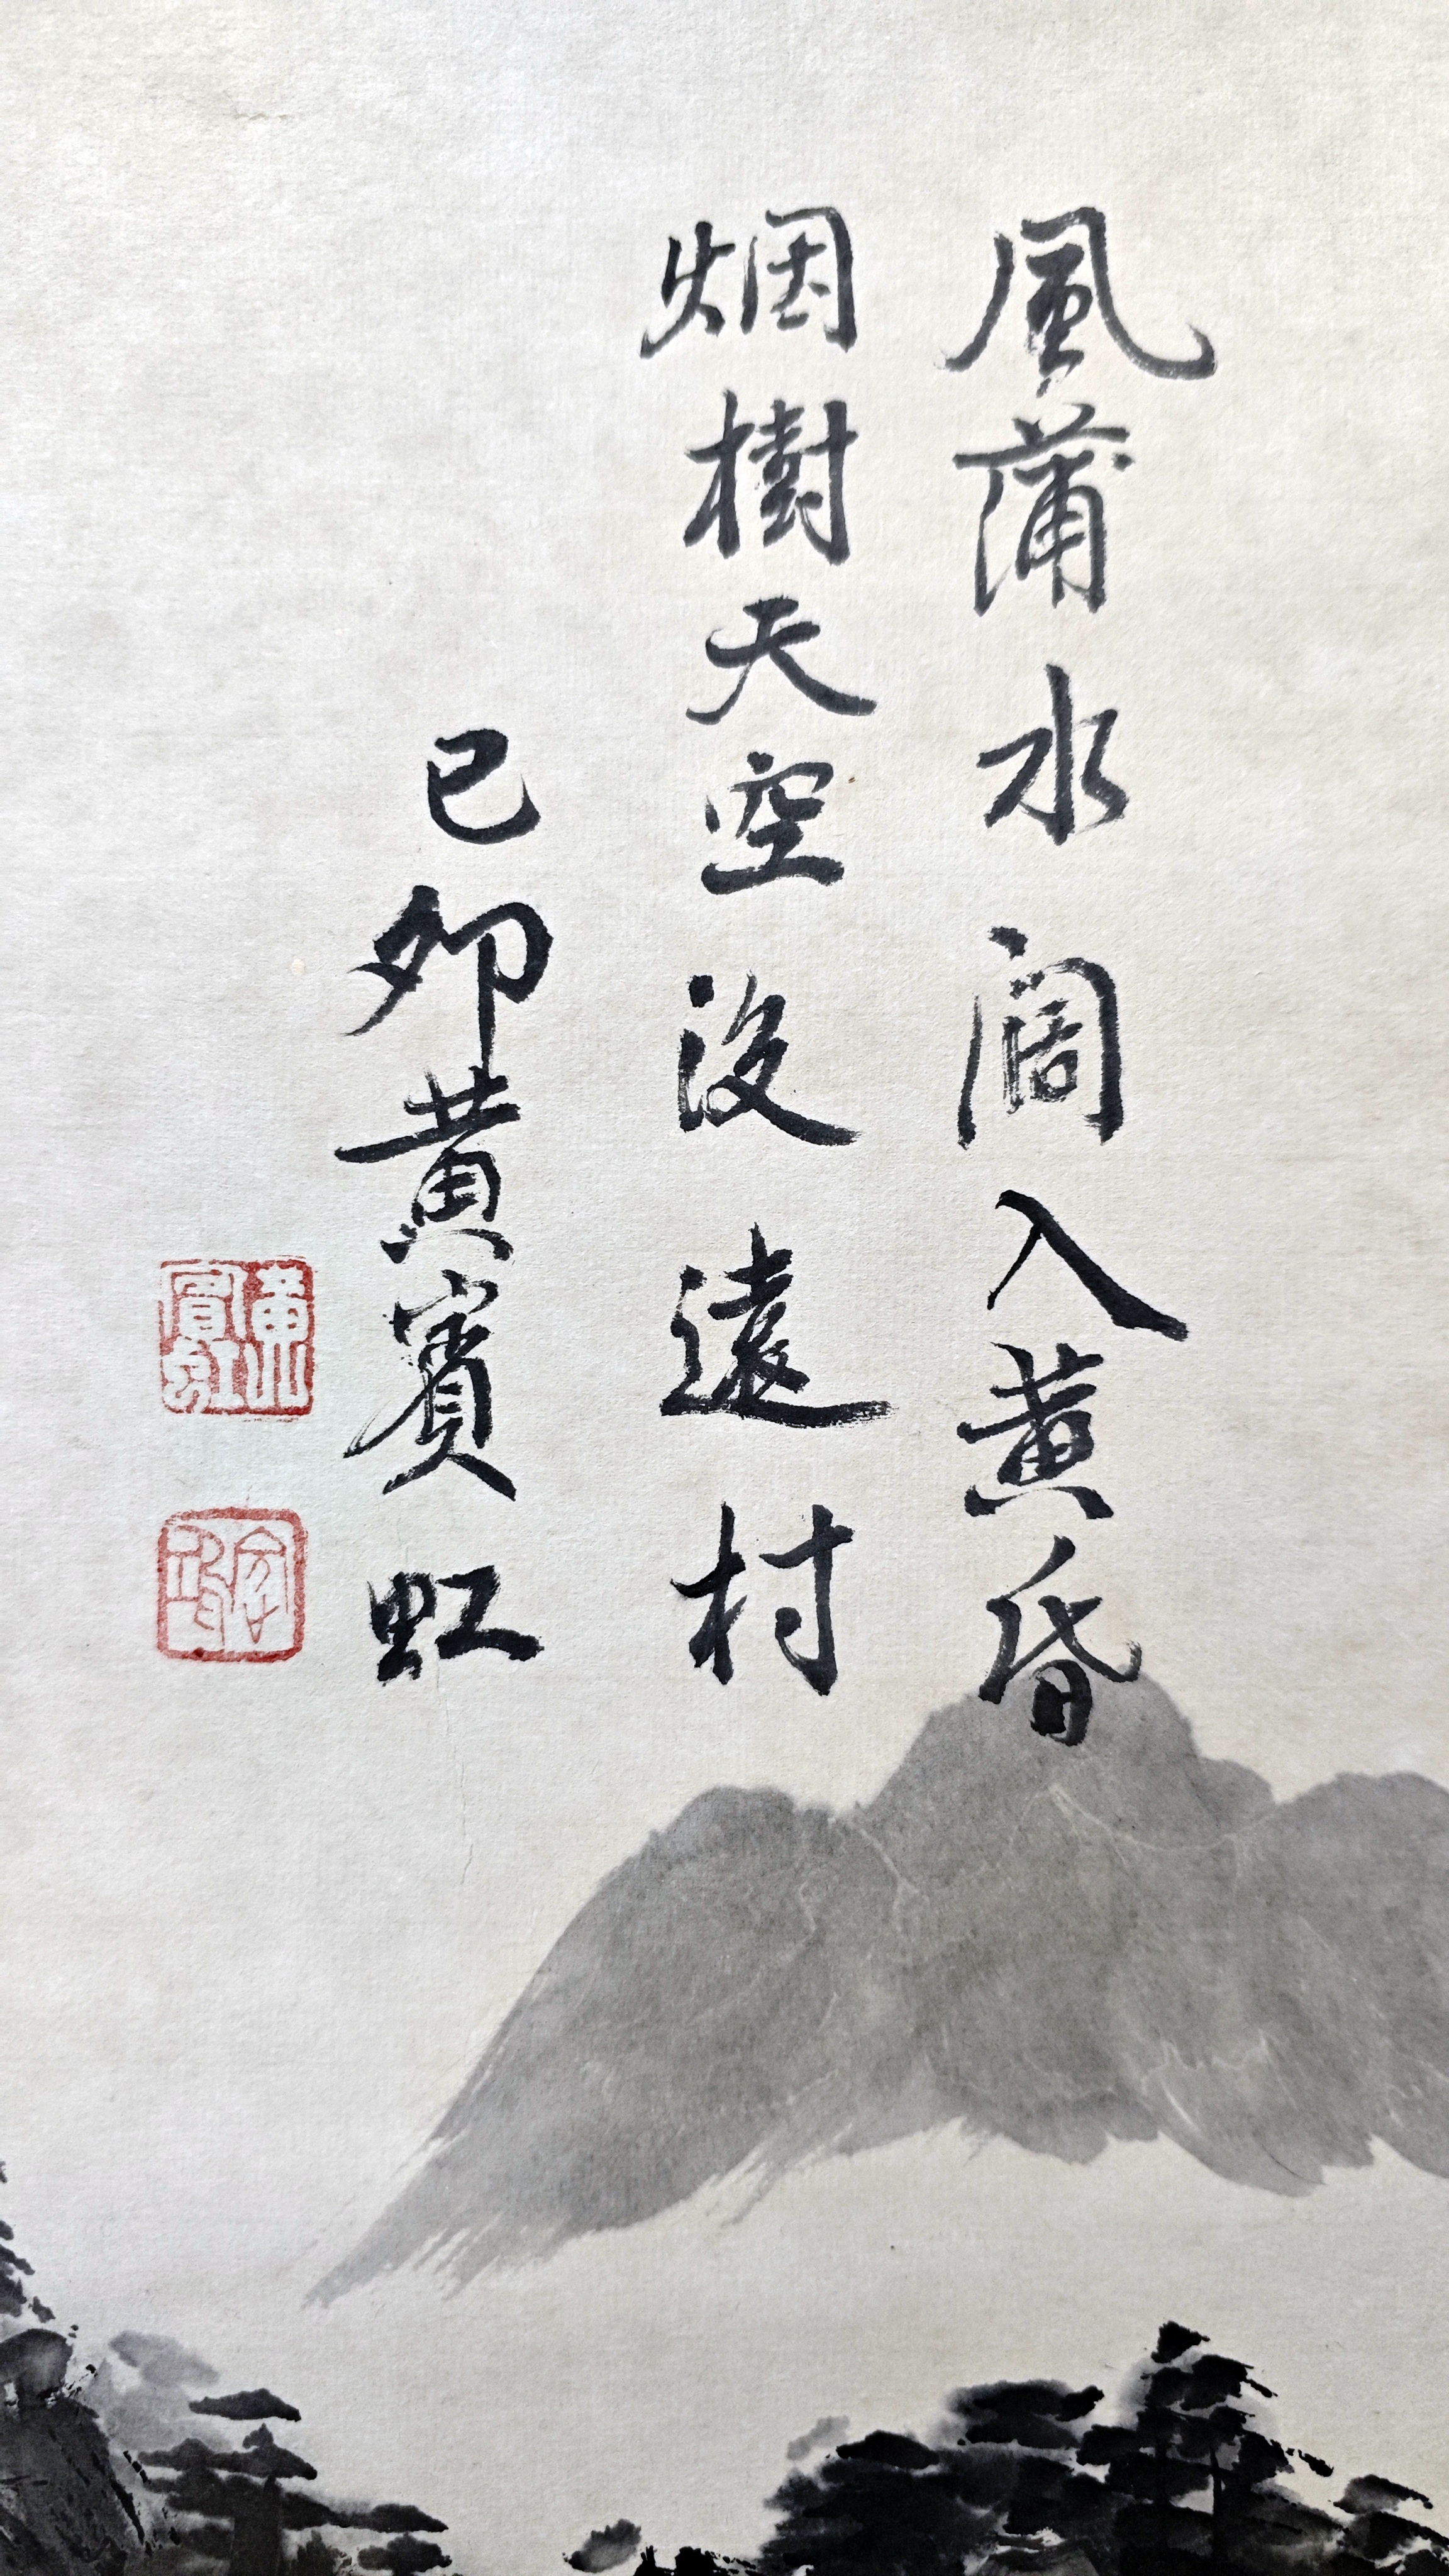 風蒲水闊入黄昏
烟樹天空没遠村
己卯黄賓虹
黄山賓虹